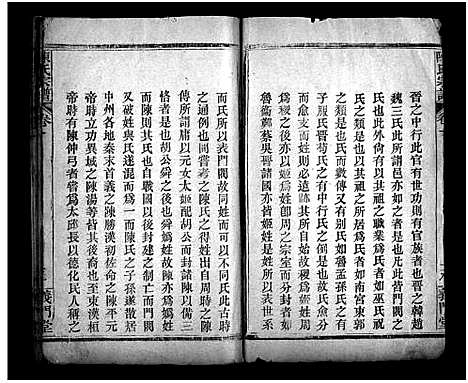 陳氏宗譜
卷一
義門堂
晉之中行有世功則有官族者也晉之韓趙
魏三氏此所謂邑亦如之者是也凡此皆門閥之
氏也此外又有以其祖之職業爲氏者如巫氏祝
氏是也有以其祖之所居爲氏者如南宮東郭
之類是也而氏而數傳又有別出氏如魯孟孫氏之
子服氏晉荀氏之智氏是也至有氏不同而姓同
而愈支者而百世婚姻不通所以別同姓也
爲稷之後亦以姬爲姓卽周之宗室而
魯衛鄭蔡吳晉諸國亦皆姬姓是姓所以
而氏所以表門閥故同姓而不同氏此古時
之通例也間嘗考之陳氏之得姓出自周時之陳
所謂庸以元女太姬配胡公而封諸陳以備三
恪者是也胡公舜之後也舜姓爲故陳亦爲媯姓
而陳則其氏也自戰國以後封建之制亡而門閥
又破姓與氏遂混而爲一而陳氏之子孫遂散居
中州各地秦末首義之陳勝漢初佐命之陳平元
帝時立功異域之陳湯等皆其後也至東漢桓
帝時有陳仲弓者嘗爲太邱長以德化民人稱之